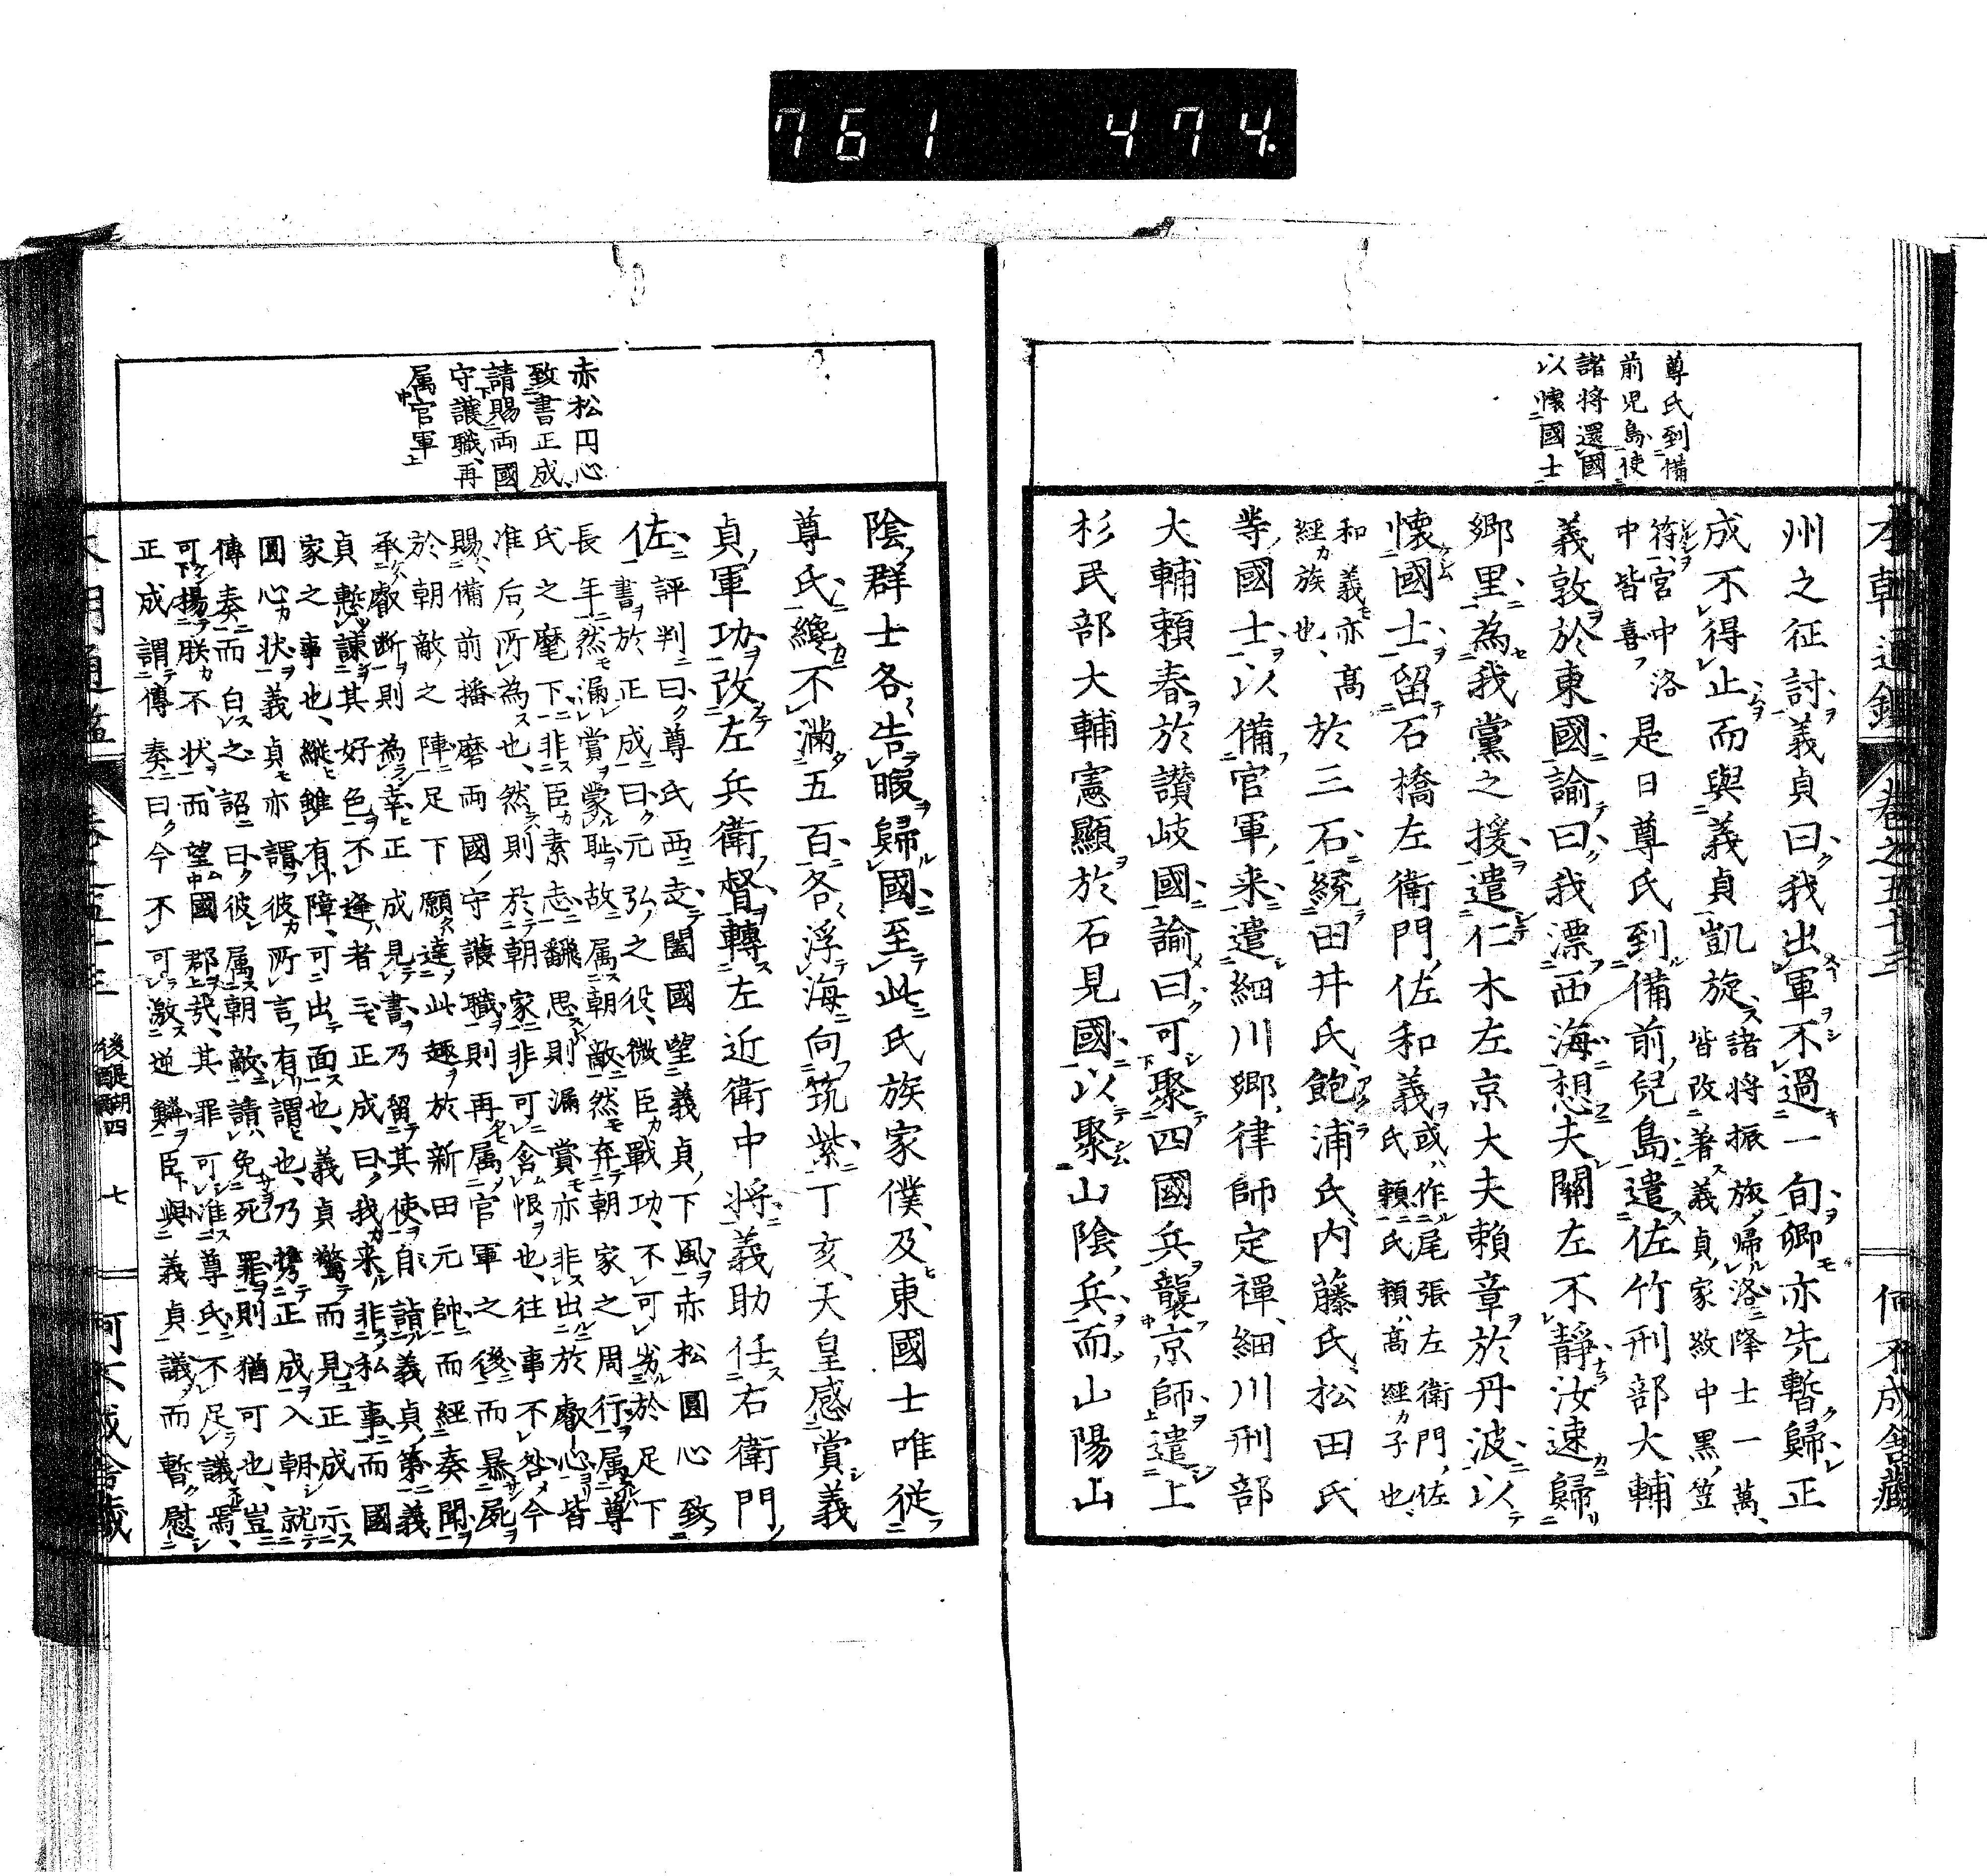 761 474.
尊氏到備
前児島使
諸将還國
以懐國士
州之征討義貞曰我出軍不過一旬卿亦先暫歸正
成不得止而與義貞凱旋諸将振旅帰洛降士一萬、
皆改著義貞家紋中黒笠
符宮中洛
中皆喜是日尊氏到備前兒島遣佐竹刑部大輔
義敦於東國諭曰我漂西海想夫關左不靜汝速歸
郷里為我黨之援遣仁木左京大夫頼章於丹波以
懐國士留石橋左衛門佐和義或作尾張左衛門佐
氏頼氏頼高經子也、
和義亦高
經族也、於三石統田井氏飽浦氏内藤氏松田氏
等國士以備官軍来遣細川郷律師定禪細川刑部
大輔頼春於讃岐國諭曰可聚四國兵襲京師遣上
杉民部大輔憲顯於石見國以聚山陰兵而山陽山
本朝通鑑 巻之五十三 何不成舎藏
赤松円心
致書正成、
請賜両國
守護職、再
属官軍
陰群士各告暇歸國至此氏族家僕及東國士唯従
尊氏纔不滿五百各浮海向筑紫丁亥天皇感賞義
貞軍功改左兵衛督轉左近衛中将義助任右衛門
佐評判曰尊氏西走闔國望義貞下風赤松圓心致
書於正成曰元弘之役、微臣戰功、不可劣於足下
長年然漏賞蒙恥故属朝敵然弃朝家之周行属尊
氏之麾下非臣素志飜思則漏賞亦非出於叡心皆
准后所為也、然則於朝家非可含恨也、往事不咎今
賜備前播磨両國守護職則再属官軍之後而暴屍
於朝敵之陣足下願達此趣於新田元帥而經奏聞
承叡断則為幸正成見書乃留其使自請義貞第義
貞慙諫其好色不逢者三正成曰我来非私事而國
家之事也、縦雖有障、可出面也、義貞驚而見正成示
圓心状義貞亦謂彼所言有謂也、乃携正成入朝就
傳奏而白之詔曰彼属朝敵請免死罪則猶可也、豈
可揚朕不状而望國郡哉、其罪可准尊氏不足議焉、
正成謂傳奏曰今不可激逆鱗臣與義貞議而暫慰
後醍醐四 七